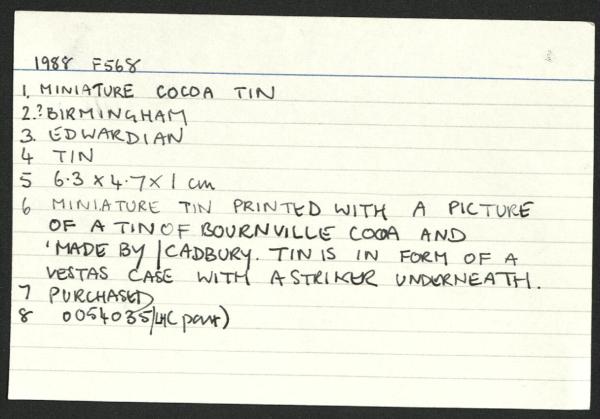 1988 F568
1. MINIATURE COCOA TIN
2.? BIRMINGHAM
3. EDWARDIAN
4 TIN
5 6.3 x 4.7 x 1 cm
6 MINIATURE TIN PRINTED WITH A PICTURE
OF A TIN OF BOURNVILLE COCOA AND
'MADE BY | CADBURY. TIN IS IN FORM OF A
VESTAS CASE WITH A STRIKER UNDERNEATH.
7 PURCHASED
8 0054035/LH( part)